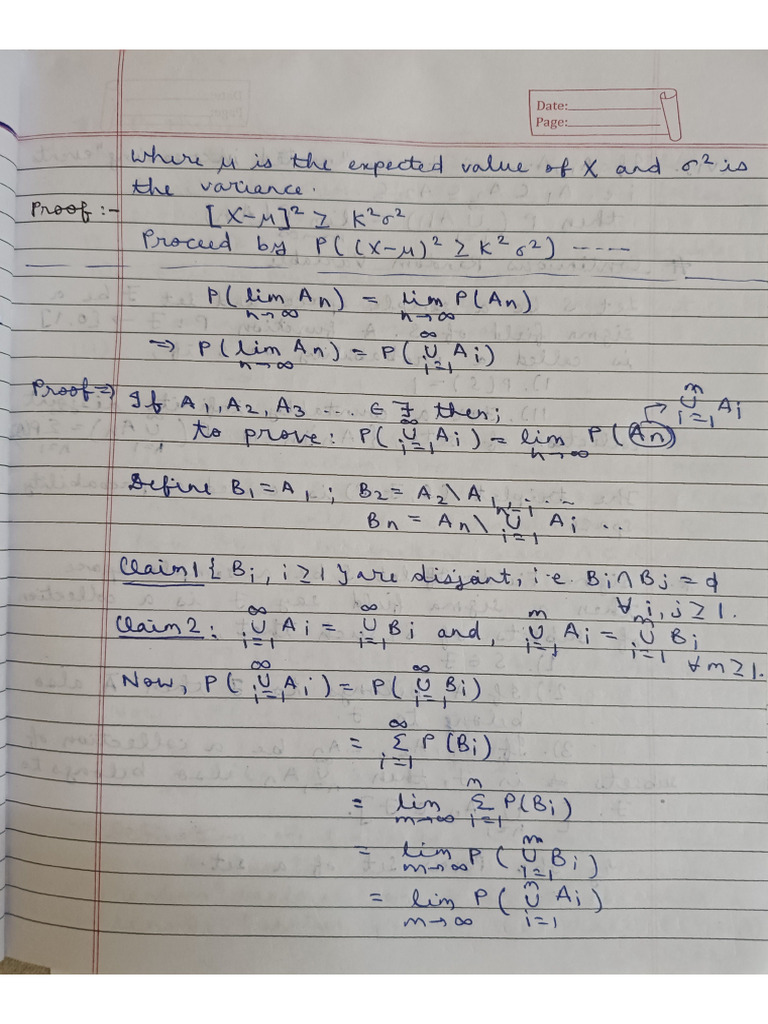 Date:
Page:
where μ is the expected value of X and σ² is
the variance.
Proof :- [X-μ]² ≥ K²σ²
Proceed by P((X-μ)² ≥ K²σ²) -----
P(lim n→∞ An) = lim n→∞ P(An)
⇒ P(lim n→∞ An) = P(∞∪i=1 Ai)
Proof ⇒ If A1, A2, A3 .... ∈ Ƒ then;
to prove: P(∞∪i=1 Ai) = lim n→∞ P(An) → m∪i=1 Ai
Define B1 = A1 ; B2 = A2\A1, ...
Bn = An\ n-1∪i=1 Ai ..
Claim 1 { Bi, i≥1 } are disjoint, i.e. Bi∩Bj = φ
∀ i, j ≥ 1.
Claim 2: ∞∪i=1 Ai = ∞∪i=1 Bi and, m∪i=1 Ai = m∪i=1 Bi
∀ m ≥ 1.
Now, P(∞∪i=1 Ai) = P(∞∪i=1 Bi)
= ∞Σi=1 P(Bi)
= lim m→∞ mΣi=1 P(Bi)
= lim m→∞ P(m∪i=1 Bi)
= lim m→∞ P(m∪i=1 Ai)